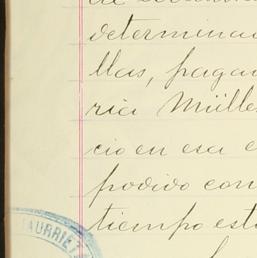 determina
llas, paga
ria Mülle
cio en esa e
podido con
tiempo est
AURRIE